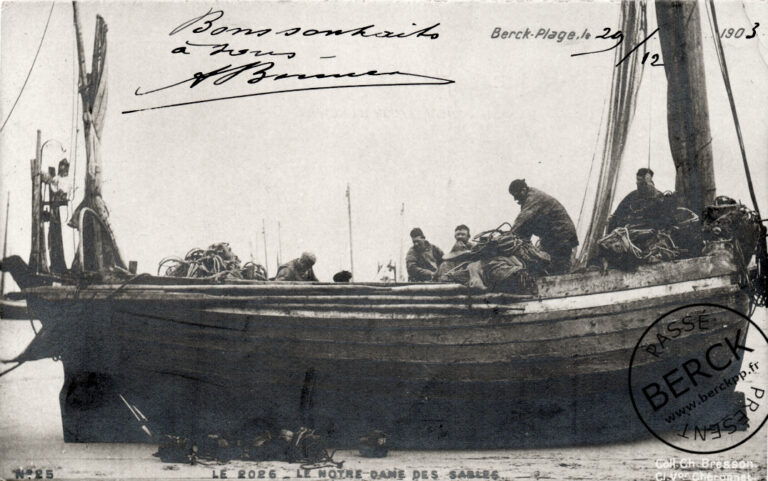 Bons souhaits
à vous
Berck-Plage, le 29/12 1903
N° 25
LE 2026 _ LE NOTRE DAME DES SABLES
PASSÉ
BERCK
www.berckpp.fr
PRÉSENT
Coll. Ch. Bresson